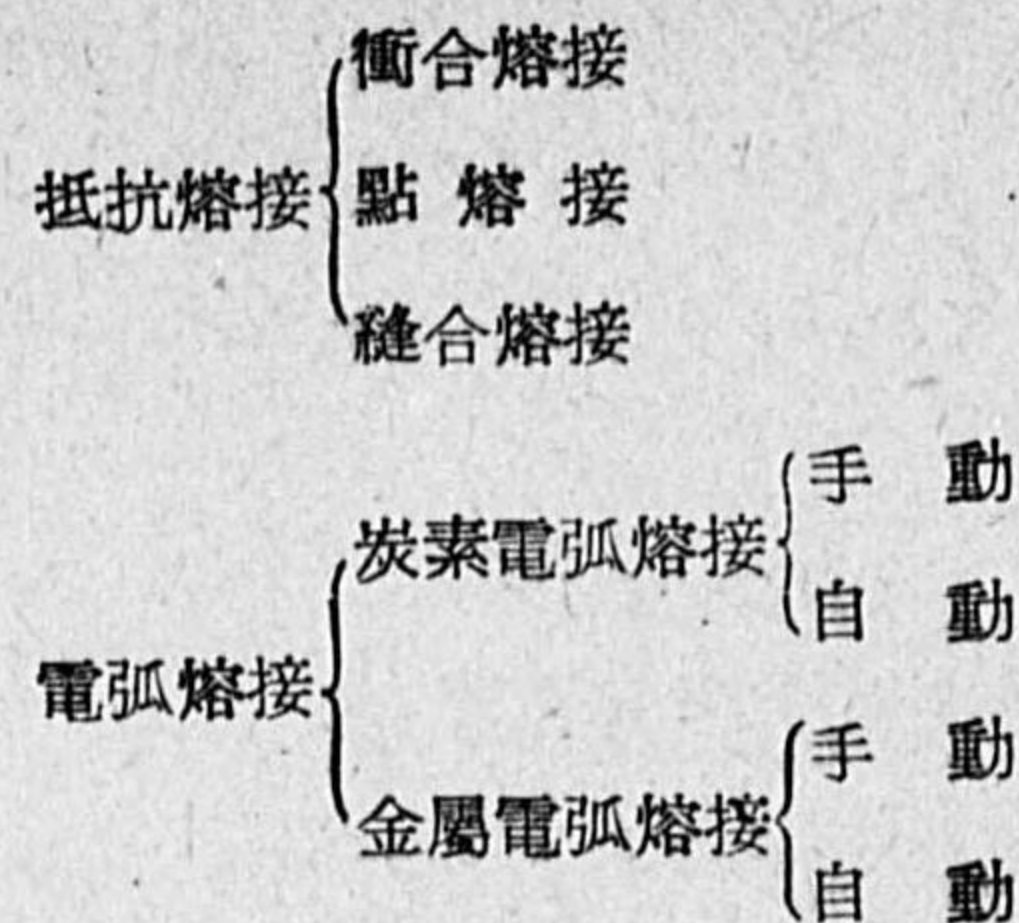 抵抗熔接
衝合熔接
點熔接
縫合熔接
電弧熔接
炭素電弧熔接
手動
自動
金屬電弧熔接
手動
自動